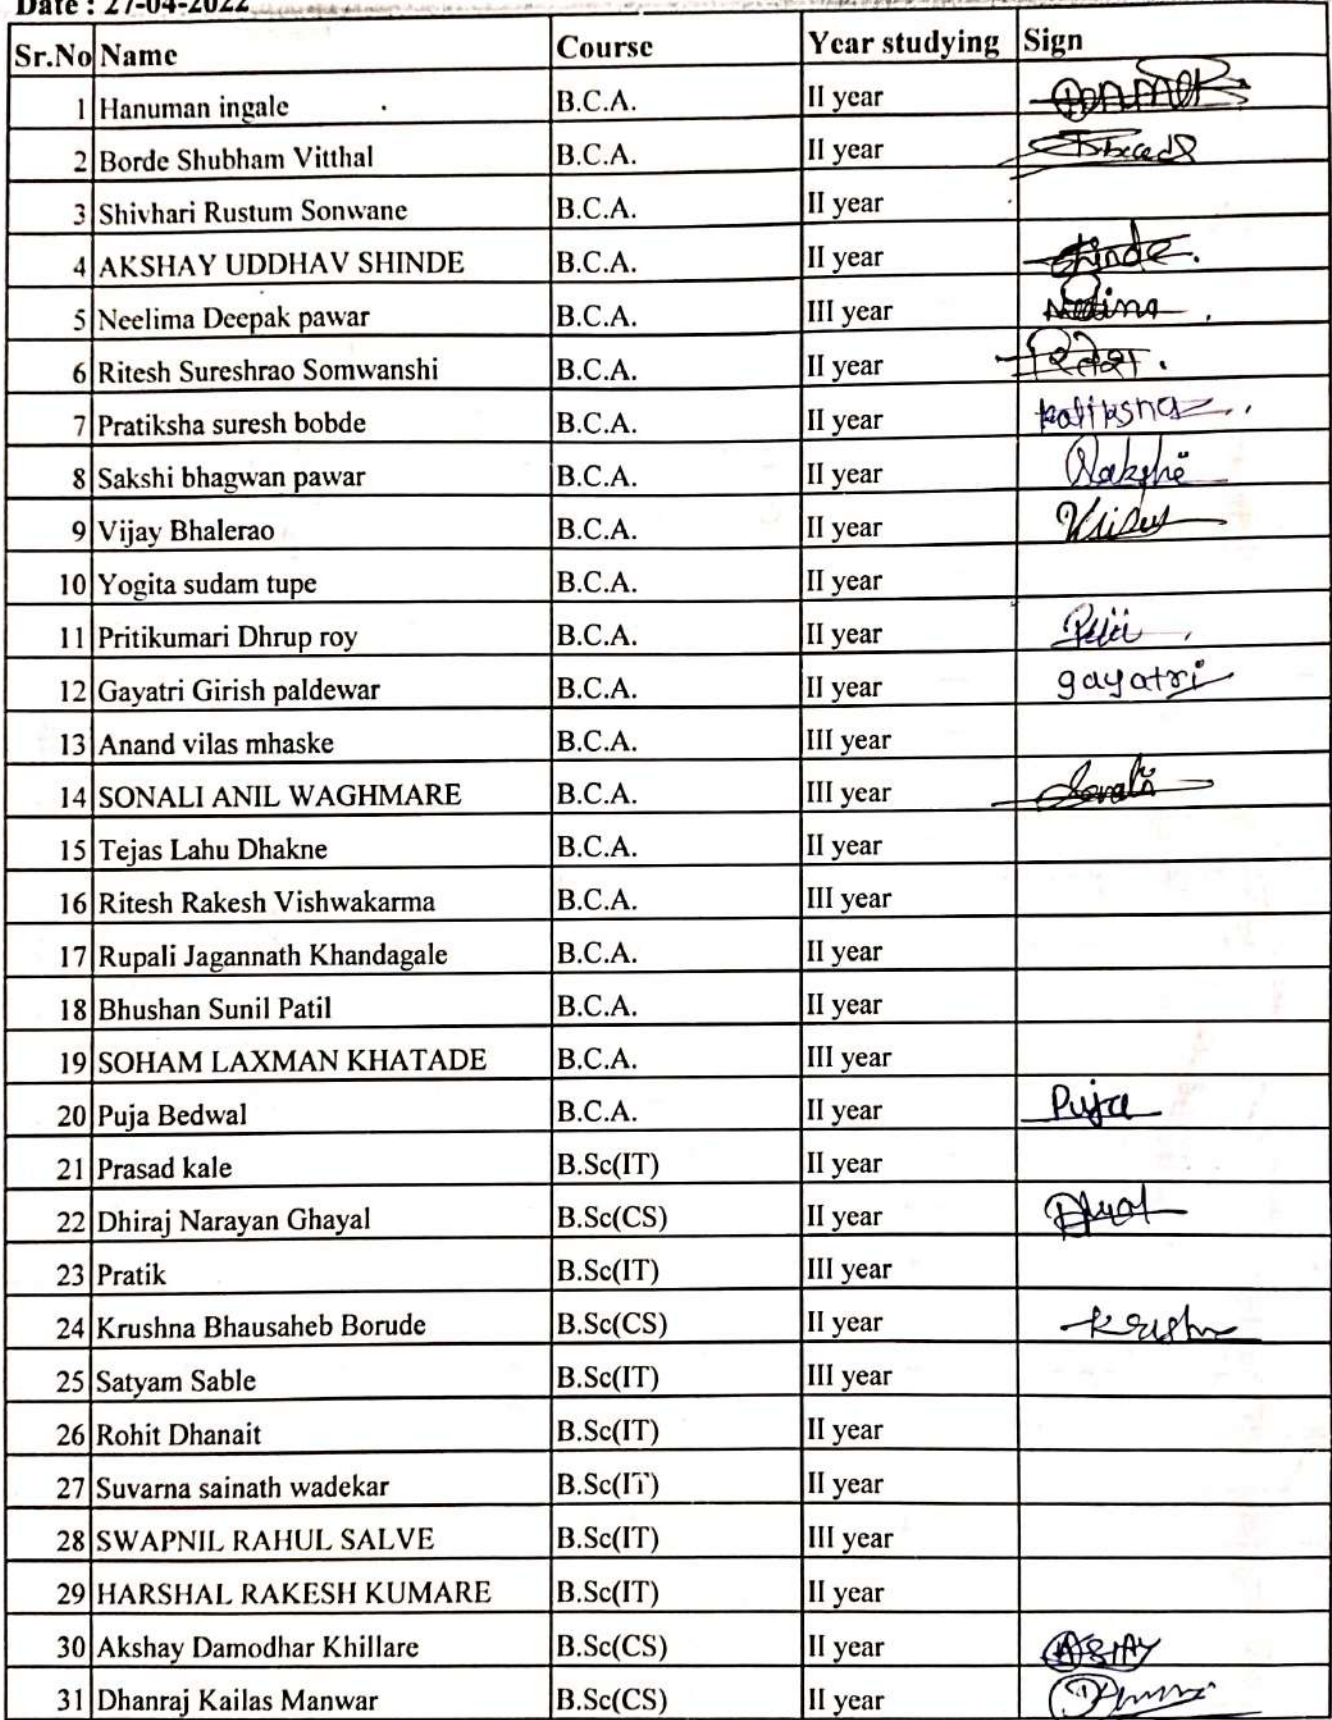 Date : 27-04-2022
Sr.No Name Course Year studying Sign
1 Hanuman ingale B.C.A. II year
2 Borde Shubham Vitthal B.C.A. II year
3 Shivhari Rustum Sonwane B.C.A. II year
4 AKSHAY UDDHAV SHINDE B.C.A. II year Shinde.
5 Neelima Deepak pawar B.C.A. III year
6 Ritesh Sureshrao Somwanshi B.C.A. II year रितेश.
7 Pratiksha suresh bobde B.C.A. II year
8 Sakshi bhagwan pawar B.C.A. II year
9 Vijay Bhalerao B.C.A. II year
10 Yogita sudam tupe B.C.A. II year
11 Pritikumari Dhrup roy B.C.A. II year
12 Gayatri Girish paldewar B.C.A. II year gayatri
13 Anand vilas mhaske B.C.A. III year
14 SONALI ANIL WAGHMARE B.C.A. III year Sonali
15 Tejas Lahu Dhakne B.C.A. II year
16 Ritesh Rakesh Vishwakarma B.C.A. III year
17 Rupali Jagannath Khandagale B.C.A. II year
18 Bhushan Sunil Patil B.C.A. II year
19 SOHAM LAXMAN KHATADE B.C.A. III year
20 Puja Bedwal B.C.A. II year Puja
21 Prasad kale B.Sc(IT) II year
22 Dhiraj Narayan Ghayal B.Sc(CS) II year
23 Pratik B.Sc(IT) III year
24 Krushna Bhausaheb Borude B.Sc(CS) II year
25 Satyam Sable B.Sc(IT) III year
26 Rohit Dhanait B.Sc(IT) II year
27 Suvarna sainath wadekar B.Sc(IT) II year
28 SWAPNIL RAHUL SALVE B.Sc(IT) III year
29 HARSHAL RAKESH KUMARE B.Sc(IT) II year
30 Akshay Damodhar Khillare B.Sc(CS) II year
31 Dhanraj Kailas Manwar B.Sc(CS) II year